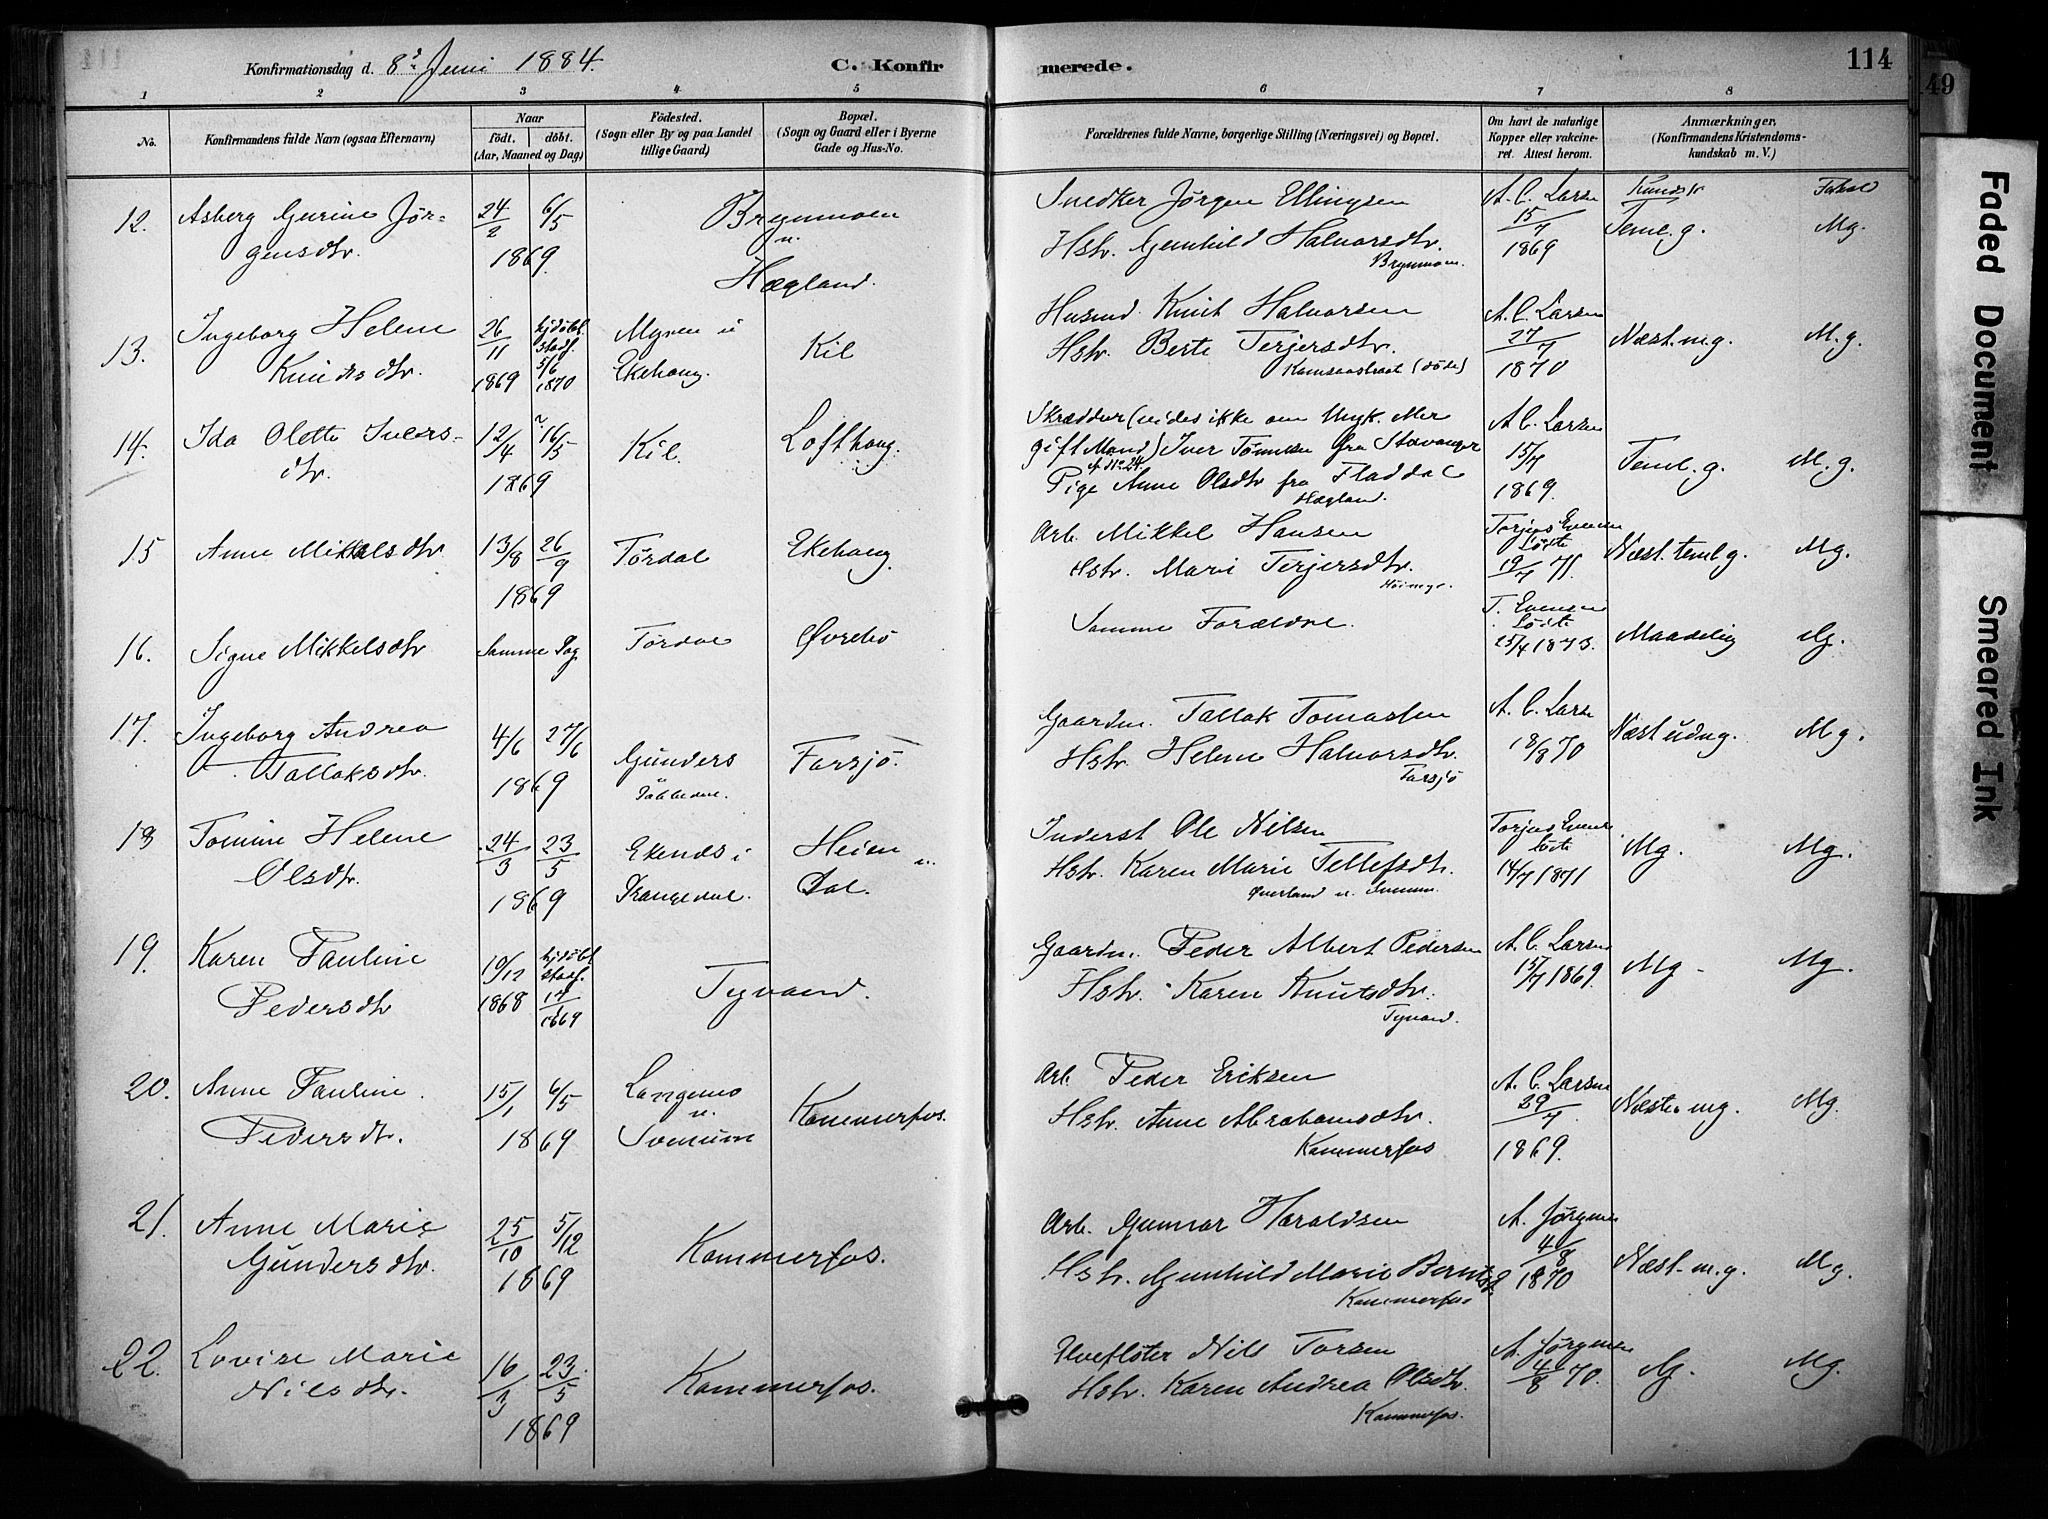 Konfirmationsdag d. 8de Juni 1884.
C. Konfirmerede.
114
49
1 2 3 4 5 6 7 8
No.
Konfirmandens fulde Navn (ogsaa Efternavn)
Naar
født. døbt.
(Aar, Maaned og Dag)
Fødested.
(Sogn eller By og paa Landet
tillige Gaard)
Bopæl.
(Sogn og Gaard eller i Byerne
Gade og Hus-No.
Forældrenes fulde Navne, borgerlige Stilling (Næringsvei) og Bopæl.
Om havt de naturlige
Kopper eller vakcine-
ret. Attest herom.
Anmærkninger.
(Konfirmandens Kristendoms-
kundskab m. V.)
12. Asberg Gurine Jør-
gensdtr.
24/2 6/5
1869
Brynmoen
u.
Hægland.
Snedker Jørgen Ellingsen
Hstr. Gunhild Halvorsdtr.
Brynmoen.
A. C. Larsen
15/7
1869
Kundsk
Teml. g.
Forhold
Mg.
13. Ingeborg Helene
Knudsdtr.
26/11
1869
hjdøbt.
stadf.
5/6
1870
Myren u
Ekehaug.
Kil
Husmd Knut Halvorsen
Hstr. Berte Terjersdtr.
(døde)
A. C. Larsen
27/7
1870
Næst. m. g.
M. g.
14. Ida Olette Ivers-
dtr.
12/4 16/5
1869
Kil.
Lofthaug.
Skrædder (vides ikke om Ungk. eller
gift Mand) Iver Tønnesen fra Stavanger
cf. No 24.
Pige Anne Olsdtr fra Fladdal
Hægland.
A. C. Larsen
15/7
1869.
Teml. g.
M. g.
15 Anne Mikkelsdtr.
13/8 26/9
1869
Tørdal
Ekehaug
Arb. Mikkel Hansen
Hstr. Mari Terjersdtr.
Torjus Evensen
Løite
19/7 71.
Næst. teml. g.
Mg.
16. Signe Mikkelsdtr
Samme Dag
Tørdal
Øvrebø
Samme Forældre.
T. Evensen
Løite
25/4 1873.
Maadelig
Mg.
17. Ingeborg Andrea
Tallaksdtr.
4/6 27/6
1869
Gunders
Farsjø.
Gaardm. Tallak Tomassen
Hstr. Helene Halvorsdtr.
Farsjø
A. C. Larse
18/8 70
Næst udm.g.
M. g.
18 Tomine Helene
Olsdtr.
24/3 23/5
1869
Ekenes i
Drangedal.
Heien
u.
Dal.
Inderst Ole Nilsen
Hstr. Karen Marie Tellefsdtr.
Øverland u.
Torjus Evense
Løite
14/7 1871
Mg.
Mg.
19. Karen Pauline
Pedersdtr
19/12
1868
hjdøbt
stadf.
17/1
1869
Tyvand.
Gaardm. Peder Albert Pedersen
Hstr. Karen Knutsdtr.
Tyvand.
A. C. Larsen
15/7 1869.
Mg.
Mg.
20. Anne Pauline
Pedersdtr.
15/1 6/5
1869
Langmo
u.
Svenum
Kammerfos.
Arb. Peder Eriksen
Hstr. Anne Abrahamsdtr.
Kammerfos
A. C. Larsen
29/7
1869.
Næsten mg.
Mg.
21. Anne Marie
Gundersdtr.
25/10 5/12
1869
Kammerfos.
Arb. Gunnar Haraldsen
Hstr. Gunhild Marie Berntsd.
Kammerfos
A. Jørgense
4/8
1870
Næst. m. g.
Mg.
22. Lovise Marie
Nilsdtr.
16/3 23/5
1869
Kammerfos.
Nils Torsen
Hstr. Karen Andrea Olsdtr.
Kammerfos.
A. Jørgensen
4/8 70.
Mg.
Mg.
Faded Document
Smeared Ink